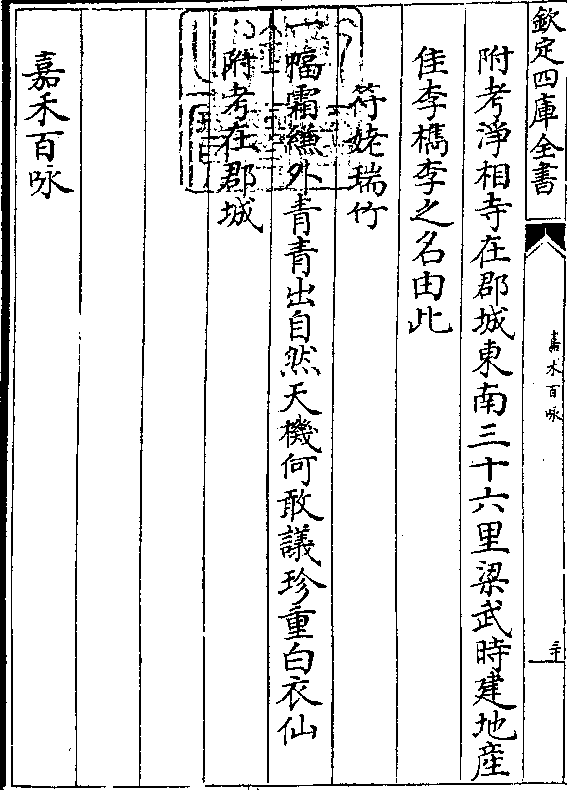 欽定四庫全書
嘉禾百咏
附考淨相寺在郡城東南三十六里梁武時建地産
佳李檇李之名由此
符姥瑞竹
一幅霜縑外青青出自然天機何敢議珍重白衣仙
附考在郡城
嘉禾百咏